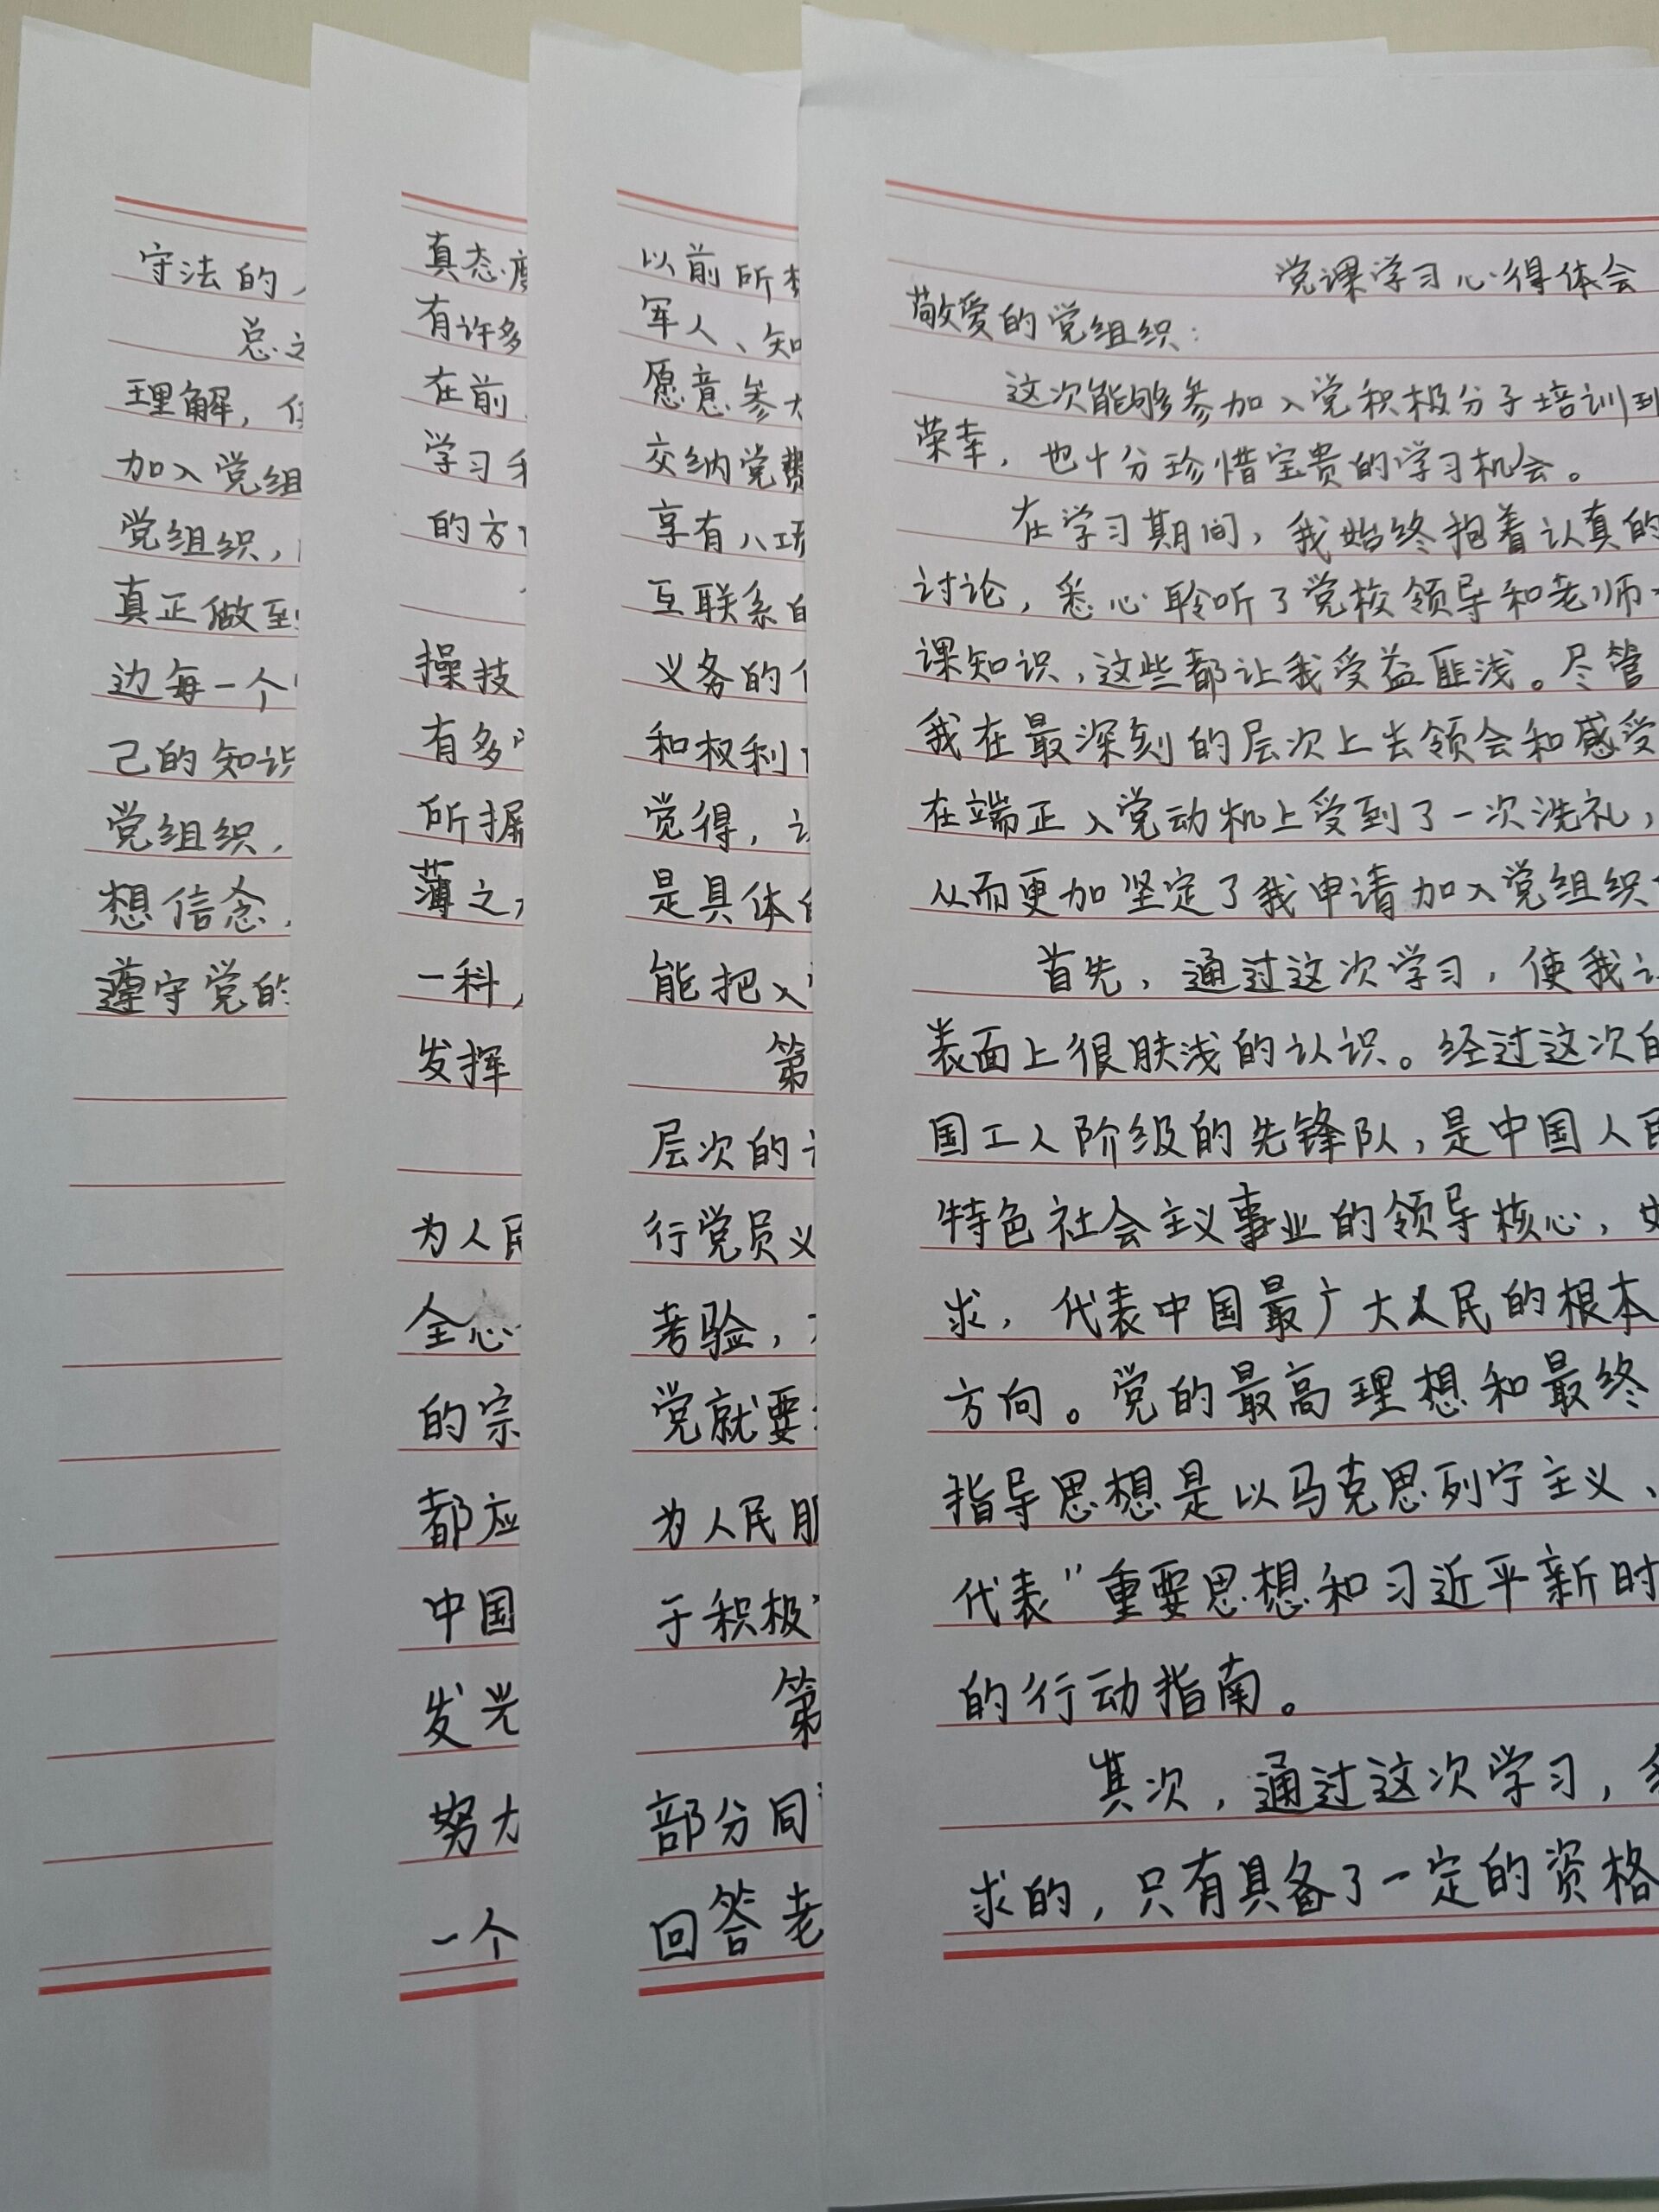 党课学习心得体会
敬爱的党组织：
这次能够参加入党积极分子培训到
荣幸，也十分珍惜宝贵的学习机会。
在学习期间，我始终抱着认真的
讨论，悉心聆听了党校领导和老师
课知识，这些都让我受益匪浅。尽管
我在最深刻的层次上去领会和感受
在端正入党动机上受到了一次洗礼，
从而更加坚定了我申请加入党组织
首先，通过这次学习，使我
表面上很肤浅的认识。经过这次
国工人阶级的先锋队，是中国人民
特色社会主义事业的领导核心，
求，代表中国最广大人民的根本
方向。党的最高理想和最终
指导思想是以马克思列宁主义、
代表”重要思想和习近平新时
的行动指南。
其次，通过这次学习，
求的，只有具备了一定的资格
以前所
军人、知
愿意参
交纳党费
享有八项
互联系
义务的
和权利
觉得，
是具体
能把入
第
层次的
行党员义
考验，
党就要
为人民
于积极
第
部分同
回答老
真态度
有许多
在前
学习
的方
操技
有多
所握
薄之
一科
发挥
为人民
全心
的宗
都应
中国
发光
努力
一个
守法的
总之
理解，
加入党组
党组织，
真正做到
边每一个
己的知识
党组织，
想信念，
遵守党的